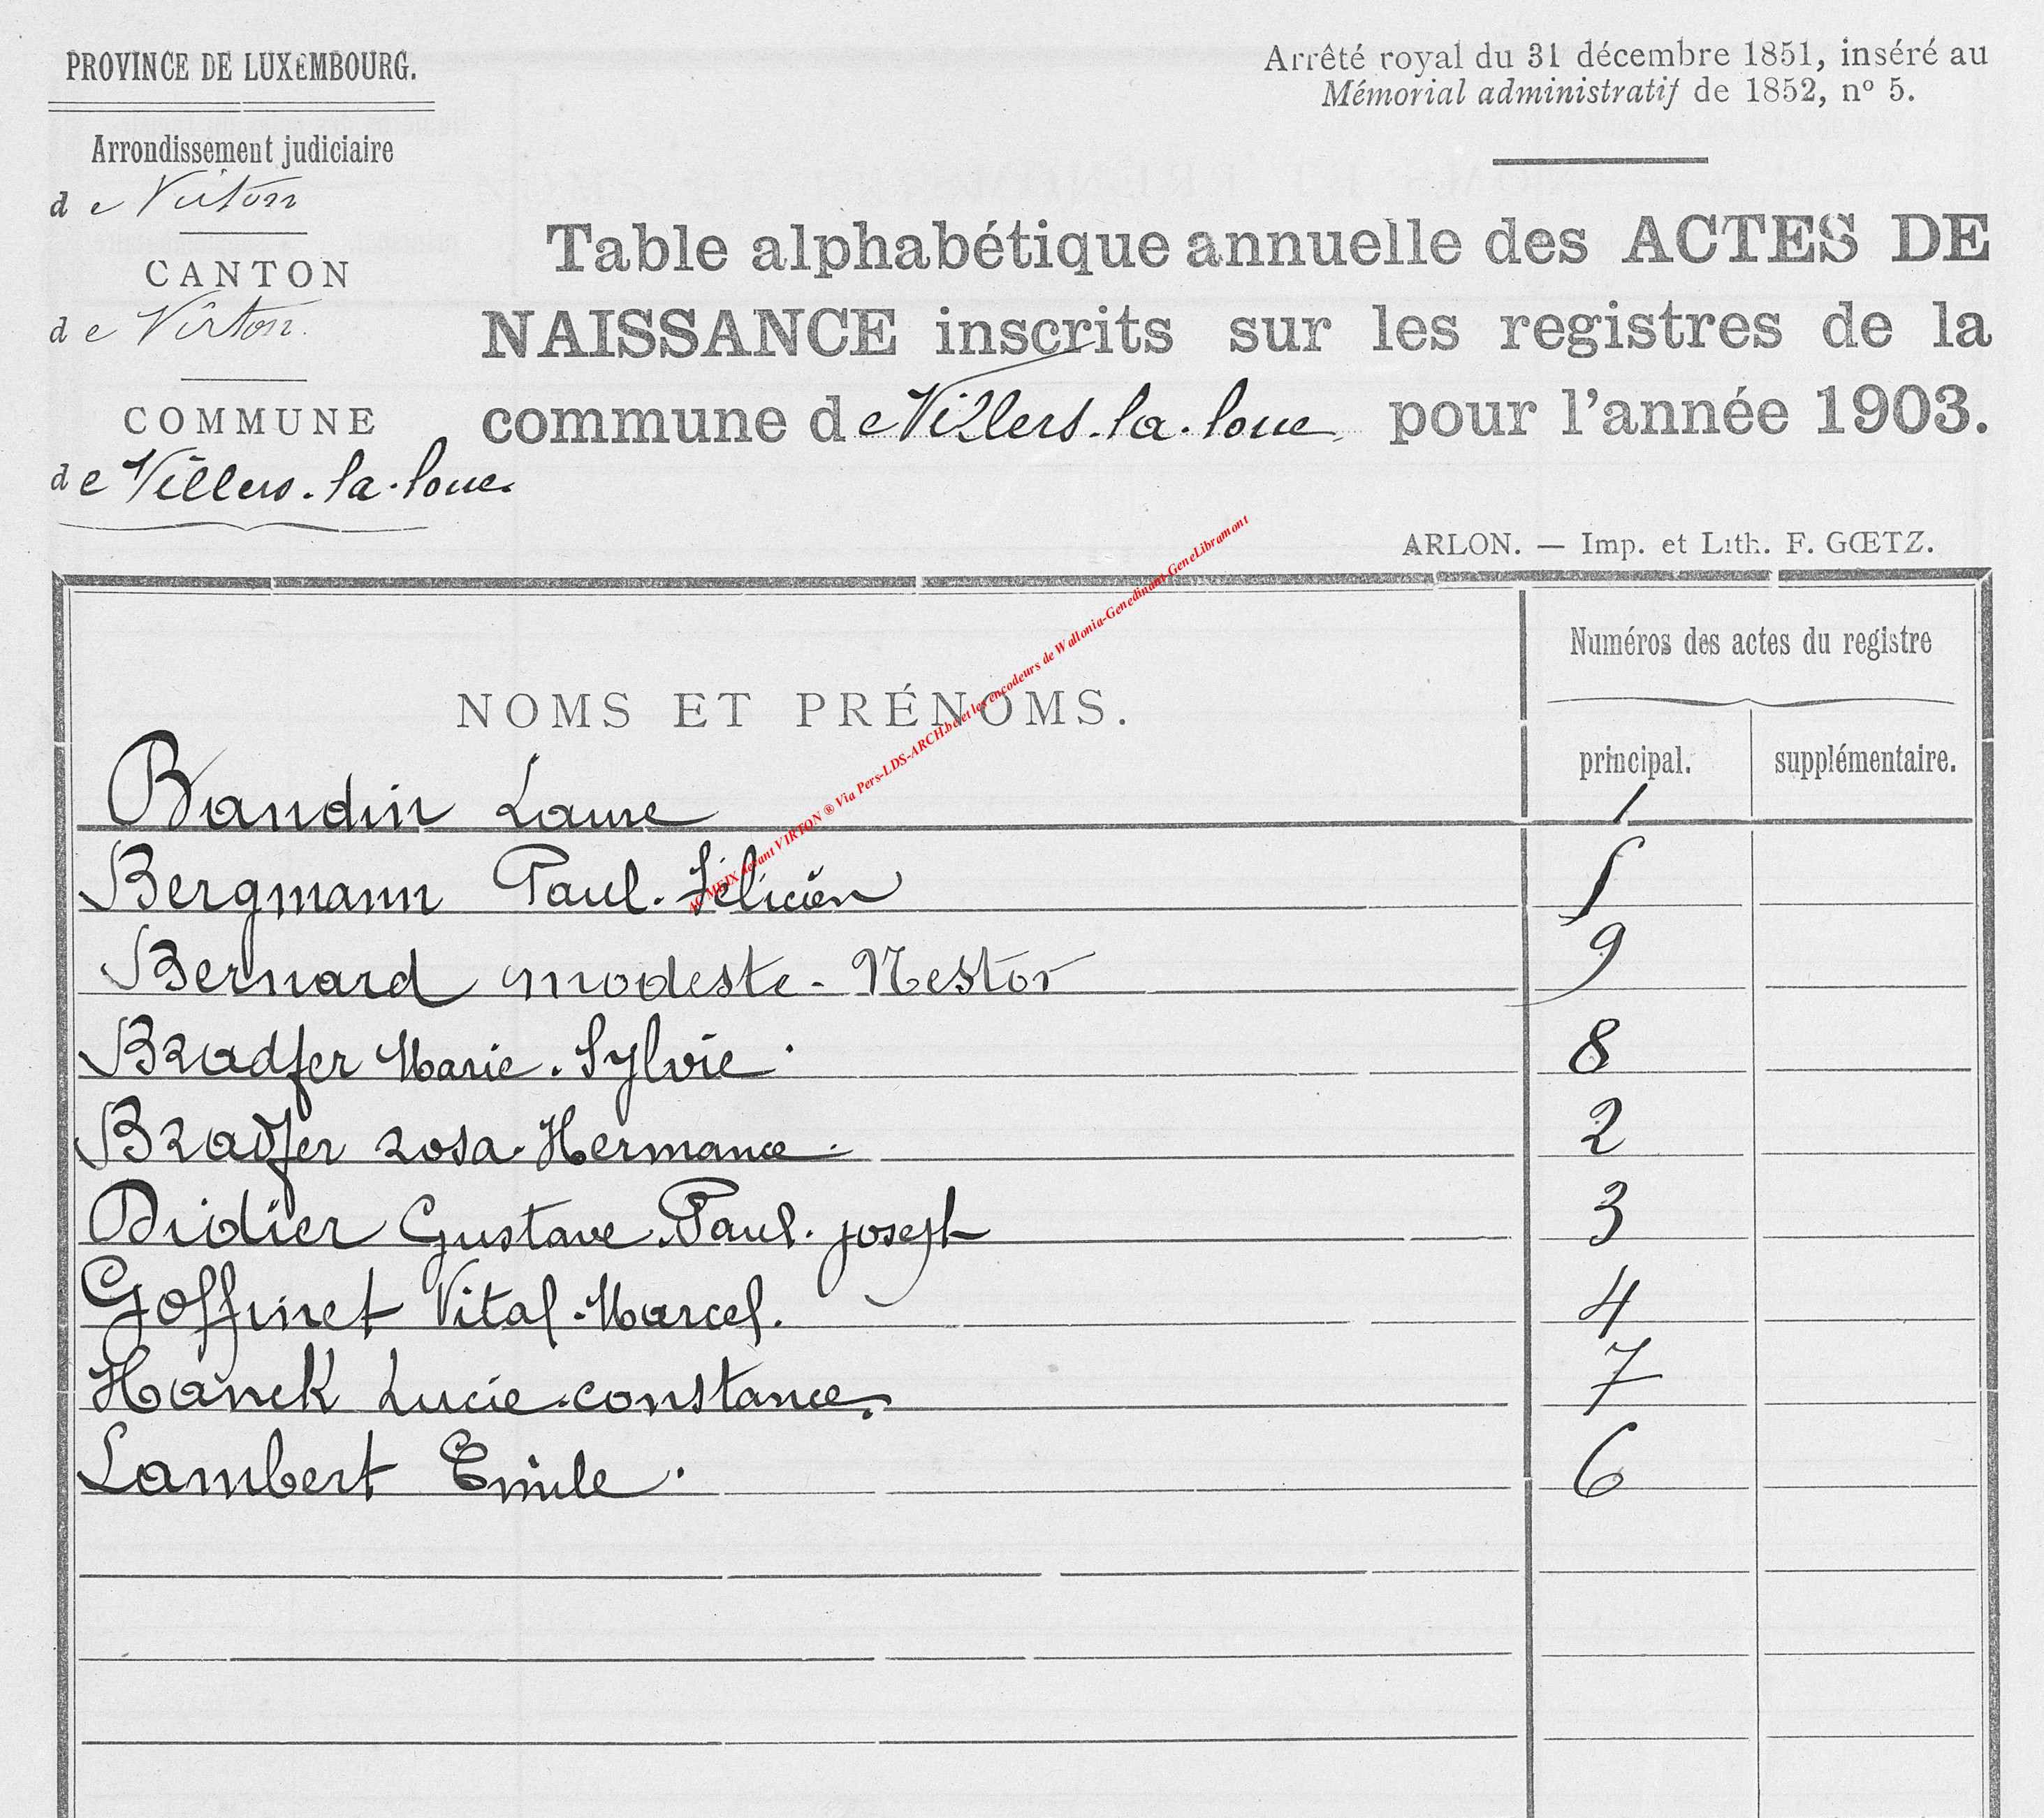 PROVINCE DE LUXEMBOURG.
Arrondissement judiciaire
de Virton
CANTON
de Virton.
COMMUNE
de Villers-la-loue.
Arrêté royal du 31 décembre 1851, inséré au
Mémorial administratif de 1852, nº 5.
Table alphabétique annuelle des ACTES DE
NAISSANCE inscrits sur les registres de la
commune de Villers-la-loue pour l'année 1903.
ARLON. — Imp. et Lith. F. GŒTZ.
NOMS ET PRÉNOMS.
Numéros des actes du registre
principal. supplémentaire.
AC MEIX devant VIRTON ® Via Pers-LDS-ARCH.be et les encodeurs de Wallonia-Genedinant-GeneLibramont
Baudin Laure 1
Bergmann Paul-Félicien 5
Bernard Modeste-Nestor 9
Bradfer Marie-Sylvie 8
Bradfer Rosa-Hermance 2
Didier Gustave-Paul-Joseph 3
Goffinet Vital-Marcel. 4
Hanck Lucie-constance. 7
Lambert Emile. 6